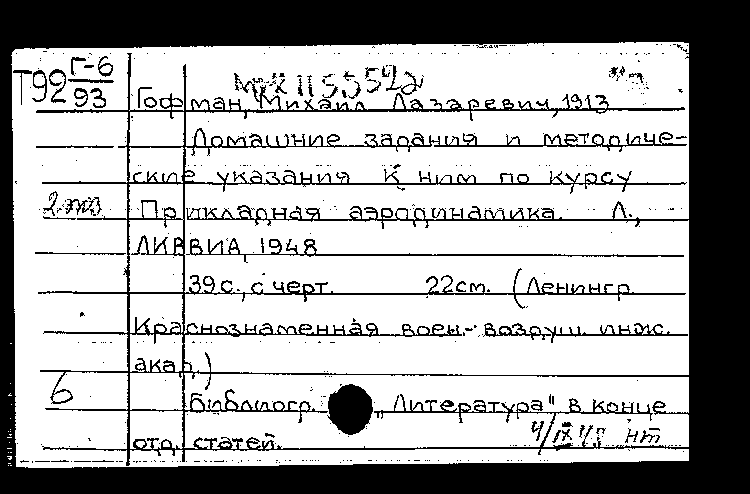 Т92 Г-6
93
Гофман, Михаил Лазаревич, 1913
Домашние задания и методиче-
ские указания к ним по курсу
2 экз
Прикладная аэродинамика. Л.,
ЛКВВИА, 1948
39с., с черт. 22см. (Ленингр.
Краснознаменная воен.-воздуш. инж.
акад.)
6
Библиогр. „Литература", в конце
отд. статей.
4/IX 48 нт